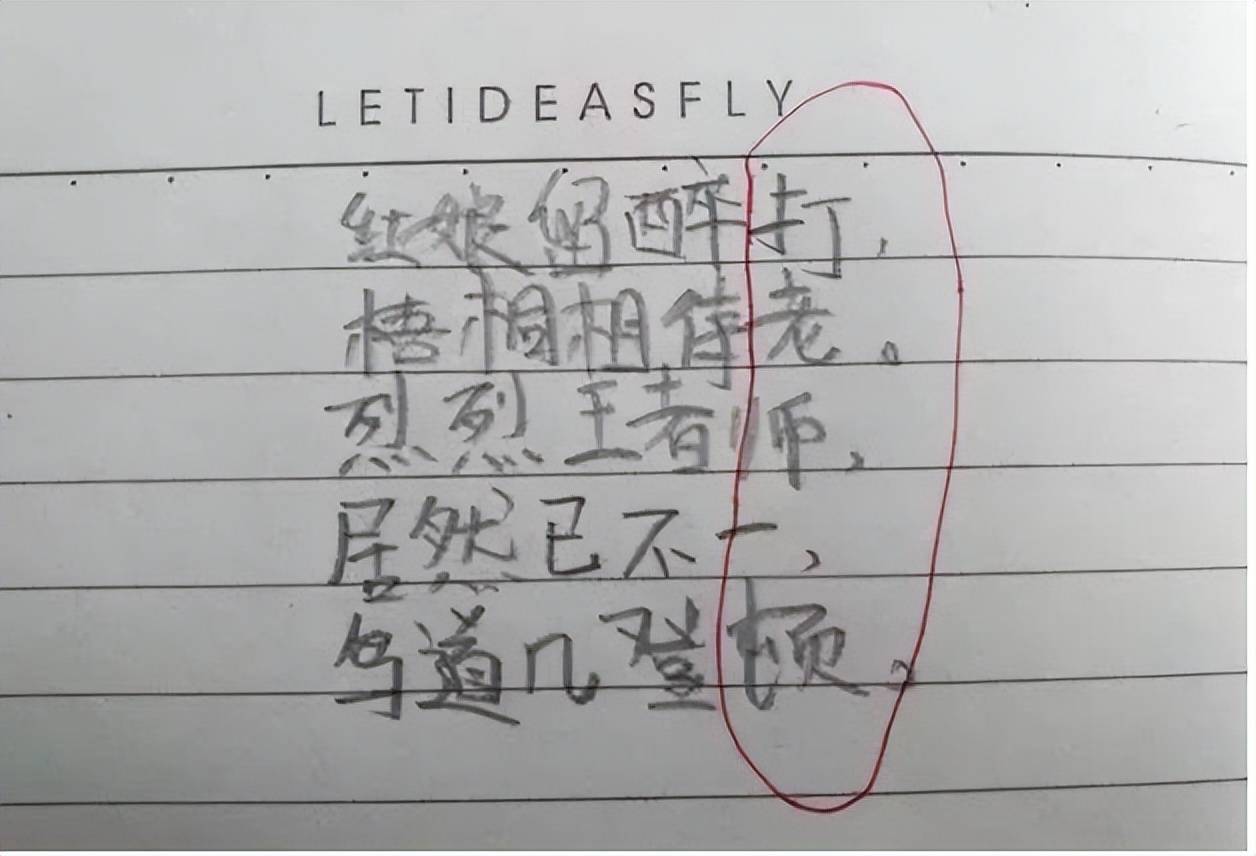 LETIDEASFLY
红娘留醉打，
梧桐相待老。
烈烈王者师，
居然已不一，
鸟道几登顿。